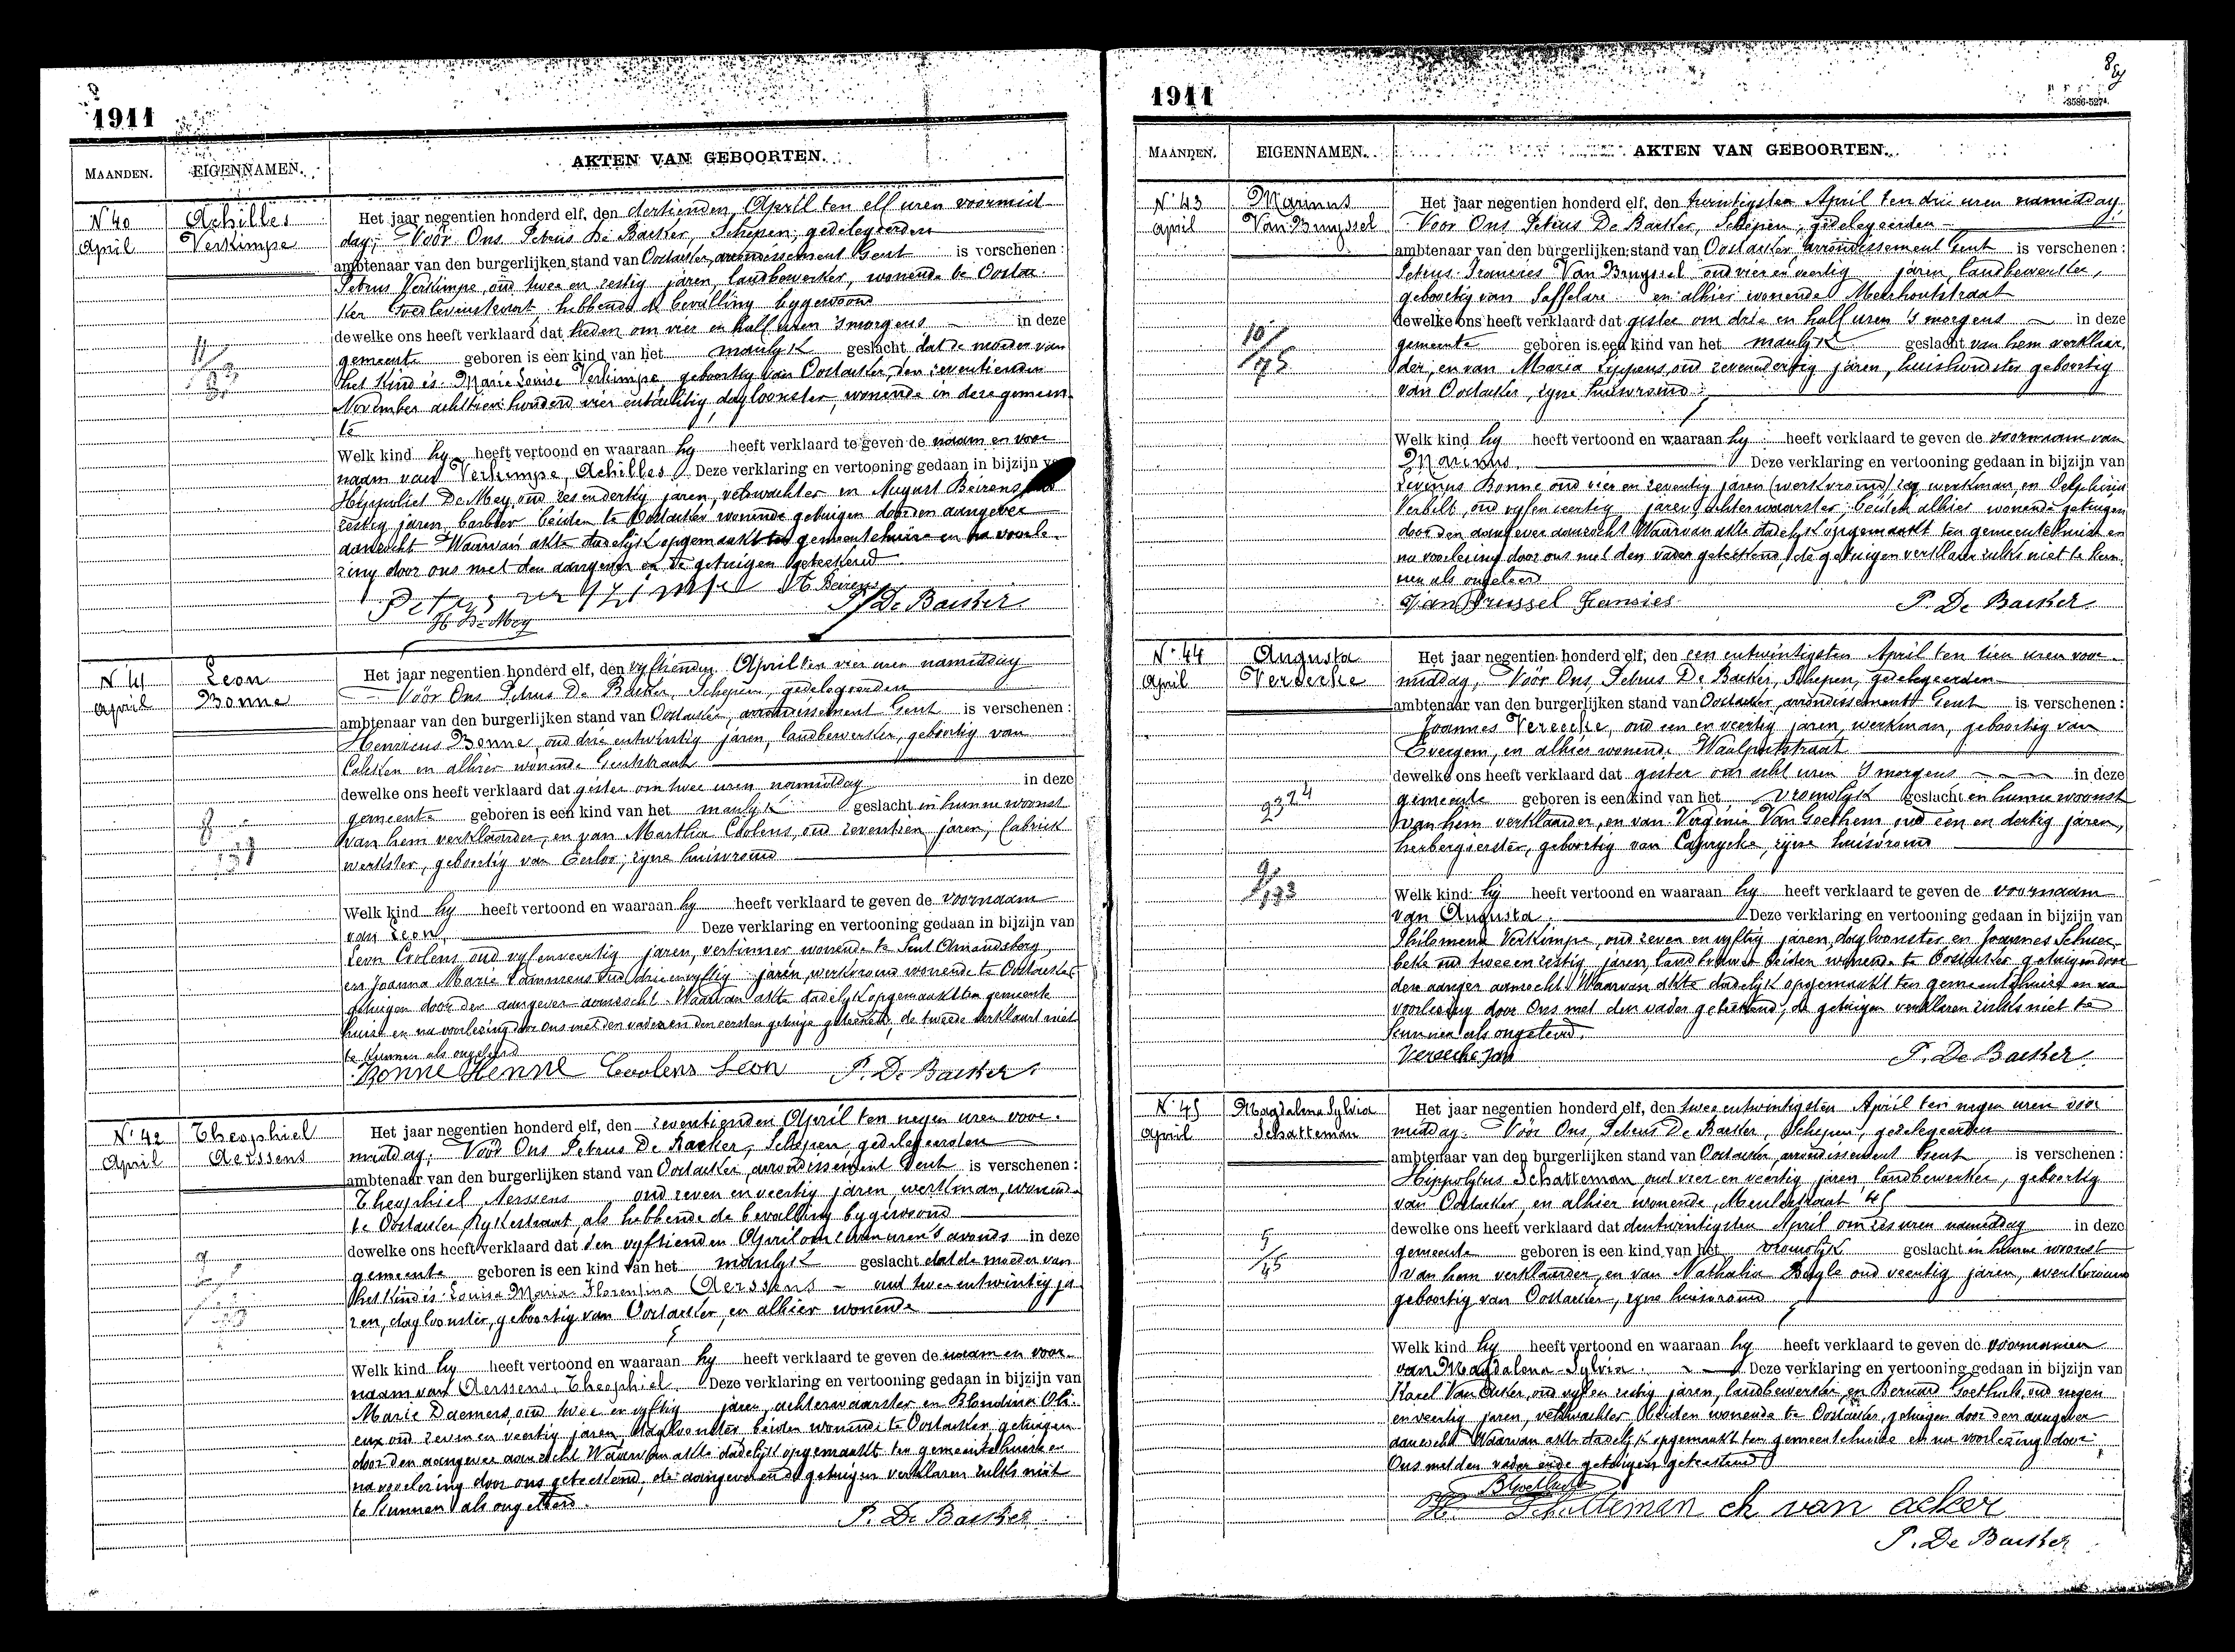 1911
MAANDEN. EIGENNAMEN. AKTEN VAN GEBOORTEN.
N° 40 Achilles
April Verkimpe
Het jaar negentien honderd elf, den dertienden April ten elf uren voormid-
dag; Vóór Ons Petrus De Backer, Schepen, gedelegeerden
ambtenaar van den burgerlijken stand van Oostacker, arrondissement Gent is verschenen:
Petrus Verkimpe, oud twee en zestig jaren, landbewerker, wonende te Oostac-
ker hebbende de bevalling bygewoond
dewelke ons heeft verklaard dat heden om vier en half uren 's morgens in deze
gemeente geboren is een kind van het manlyk geslacht dat de moeder van
het kind is: Marie Louise Verkimpe, geboortig van Oostacker, den zeventienden
November achttien honderd vier entachtig, dagloonster, wonende in deze gemeen-
te
Welk kind hy heeft vertoond en waaraan hy heeft verklaard te geven de naam en voor
naam van Verkimpe, Achilles. Deze verklaring en vertooning gedaan in bijzijn
Hyppoliet De Mey, oud zes endertig jaren, veldwachter en August Beirens
zestig jaren, barbier beiden te Oostacker wonende getuigen door den aangever
aanzocht Waarvan akte dadelijk opgemaakt ten gemeentehuize en na voorle-
zing door ons met den aangever en de getuigen geteekend
Petrus verkimpe A. Beirens
H. De Mey P. De Backer
N° 41 Leon
April Bonne
Het jaar negentien honderd elf, den vyftienden April ten vier uren namiddag
Vóór Ons Petrus De Backer, Schepen, gedelegeerden
ambtenaar van den burgerlijken stand van Oostacker, arrondissement Gent is verschenen:
Henricus Bonne, oud drie entwintig jaren, landbewerker, geboortig van
en alhier wonende Gentstraat
dewelke ons heeft verklaard dat gister om twee uren namiddag in deze
gemeente geboren is een kind van het manlyk geslacht in hunne woonst
van hem verklaarder, en van Martha Coolens, oud zeventien jaren, fabriek
werkster, geboortig van Eecloo, zyne huisvrouw
Welk kind hy heeft vertoond en waaraan hy heeft verklaard te geven de voornaam
van Leon. Deze verklaring en vertooning gedaan in bijzijn van
Leon Coolens oud vyfenveertig jaren, vertinner wonende te Sint Amandsberg,
en Joanna Maria oud drie envyftig jaren, werkvrouw wonende te Oostacker
getuigen door den aangever aanzocht. Waarvan akte dadelyk opgemaakt ten gemeente
huize en na voorlezing door ons met den vader en den eersten getuige geteekend, de tweede verklaart niet
te kunnen als ongeleerd
Bonne Henne Coolens Leon P. De Backer.
N° 42 Theophiel
April Aerssens
Het jaar negentien honderd elf, den zeventienden April ten negen uren voor-
middag; Vóór Ons Petrus De Backer, Schepen, gedelegeerden
ambtenaar van den burgerlijken stand van Oostacker, arrondissement Gent is verschenen:
Theophiel Aerssens oud zeven en veertig jaren, werkman, wonende
te Oostacker Rykestraat, als hebbende de bevalling bygewoond
dewelke ons heeft verklaard dat den vyftienden April om uren 's avonds in deze
gemeente geboren is een kind van het manlyk geslacht dat de moeder van
het kind is: Louisa Maria Florentina Aerssens oud twee entwintig ja-
ren, dagloonster, geboortig van Oostacker, en alhier wonende
Welk kind hy heeft vertoond en waaraan hy heeft verklaard te geven de naam en voor-
naam van Aerssens, Theophiel. Deze verklaring en vertooning gedaan in bijzijn van
Marie Daemers, oud twee en vyftig jaren, achterwaarster en Blondina Oli-
oud zeven en veertig jaren, dagloonster, beiden wonende te Oostacker, getuigen
door den aangever aanzocht Waarvan akte dadelijk opgemaakt ten gemeentehuize en
na voorlezing door ons geteekend, de aangever ende getuigen verklaren zulks niet
te kunnen als ongeleerd.
P. De Backer
1911
MAANDEN. EIGENNAMEN. AKTEN VAN GEBOORTEN.
N° 43 Marinus
April Van Bruyssel
Het jaar negentien honderd elf, den twintigsten April ten drie uren namiddag,
Vóór Ons Petrus De Backer, Schepen, gedelegeerden
ambtenaar van den burgerlijken stand van Oostacker, arrondissement Gent is verschenen:
Petrus Francies Van Bruyssel, oud vier en veertig jaren, landbewerker,
geboortig van Saffelare en alhier wonende Meerhoutstraat
dewelke ons heeft verklaard dat gister om drie en half uren 's morgens in deze
gemeente geboren is een kind van het manlyk geslacht van hem verklaar-
der, en van Maria Lippens, oud zevenendertig jaren, huishoudster geboortig
van Oostacker, zyne huisvrouw
10/75
Welk kind hy heeft vertoond en waaraan hy heeft verklaard te geven de voornaam van
Marinus. Deze verklaring en vertooning gedaan in bijzijn van
Levinus Bonne oud vier en zeventig jaren werkman, en Delphina
Verbilt, oud vyfenveertig jaren, achterwaarster, beiden alhier wonende getuigen
door den aangever aanzocht Waarvan akte dadelyk opgemaakt ten gemeentehuize en
na voorlezing door ons met den vader geteekend, de getuigen verklaren zulks niet te kun-
nen als ongeleerd
Van Brussel Fransies P. De Backer.
N° 44 Augusta
April Verecke
Het jaar negentien honderd elf, den een entwintigsten April ten tien uren voor-
middag, Vóór Ons, Petrus De Backer, Schepen, gedelegeerden
ambtenaar van den burgerlijken stand van Oostacker, arrondissement Gent is verschenen:
Joannes Verecke, oud een en veertig jaren, werkman, geboortig van
Evergem, en alhier wonende Waalputstraat
dewelke ons heeft verklaard dat gister om acht uren 's morgens in deze
gemeente geboren is een kind van het vrouwlyk geslacht in hunne woonst
van hem verklaarder, en van Virginia Van Goethem oud een en dertig jaren,
herbergierster, geboortig van Caprycke, zyne huisvrouw
Welk kind hy heeft vertoond en waaraan hy heeft verklaard te geven de voornaam
van Augusta. Deze verklaring en vertooning gedaan in bijzijn van
Philomena Verkimpe, oud zeven en vyftig jaren, dagloonster en Joannes
oud twee en zestig jaren, landbouwer beiden wonende te Oostacker getuigen door
den aanger aanzocht Waarvan akte dadelyk opgemaakt ten gemeentehuize en na
voorlezing door Ons met den vader geteekend, de getuigen verklaren zulks niet te
kunnen als ongeleerd.
Verecke Jan P. De Backer.
N° 45 Magdalena Sylvia
April Schatteman
Het jaar negentien honderd elf, den twee entwintigsten April ten negen uren voor
middag. Vóór Ons, Petrus De Backer, Schepen, gedelegeerden
ambtenaar van den burgerlijken stand van Oostacker, arrondissement Gent is verschenen:
Hippolytus Schatteman oud vier en veertig jaren landbewerker, geboortig
van Oostacker, en alhier wonende, Meulestraat
dewelke ons heeft verklaard dat dentwintigsten April om zes uren namiddag in deze
gemeente geboren is een kind van het vrouwlyk geslacht in hunne woonst
van hem verklaarder, en van Nathalia oud veertig jaren, werkvrouw
geboortig van Oostacker, zyne huisvrouw
5/45
Welk kind hy heeft vertoond en waaraan hy heeft verklaard te geven de voornamen
van Magdalena Sylvia. Deze verklaring en vertooning gedaan in bijzijn van
Karel Van Acker, oud vyfen zestig jaren, landbewerker, en Bernard Goethals, oud negen
enveertig jaren, veldwachter beiden wonende te Oostacker, getuigen door den aangever
aanzocht Waarvan akte dadelyk opgemaakt ten gemeentehuize en na voorlezing door
Ons met den vader ende getuigen geteekend
B Goethals
H. Schatteman ch van acker
P. De Backer